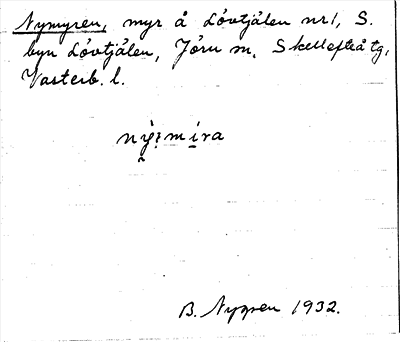 Nymyren, myr å Lövtjälen nr 1, S.
byn Lövtjälen, Jörn sn, Skellefteå tg,
Västerb. l.
nỳ:míra
B. Nygren 1932.